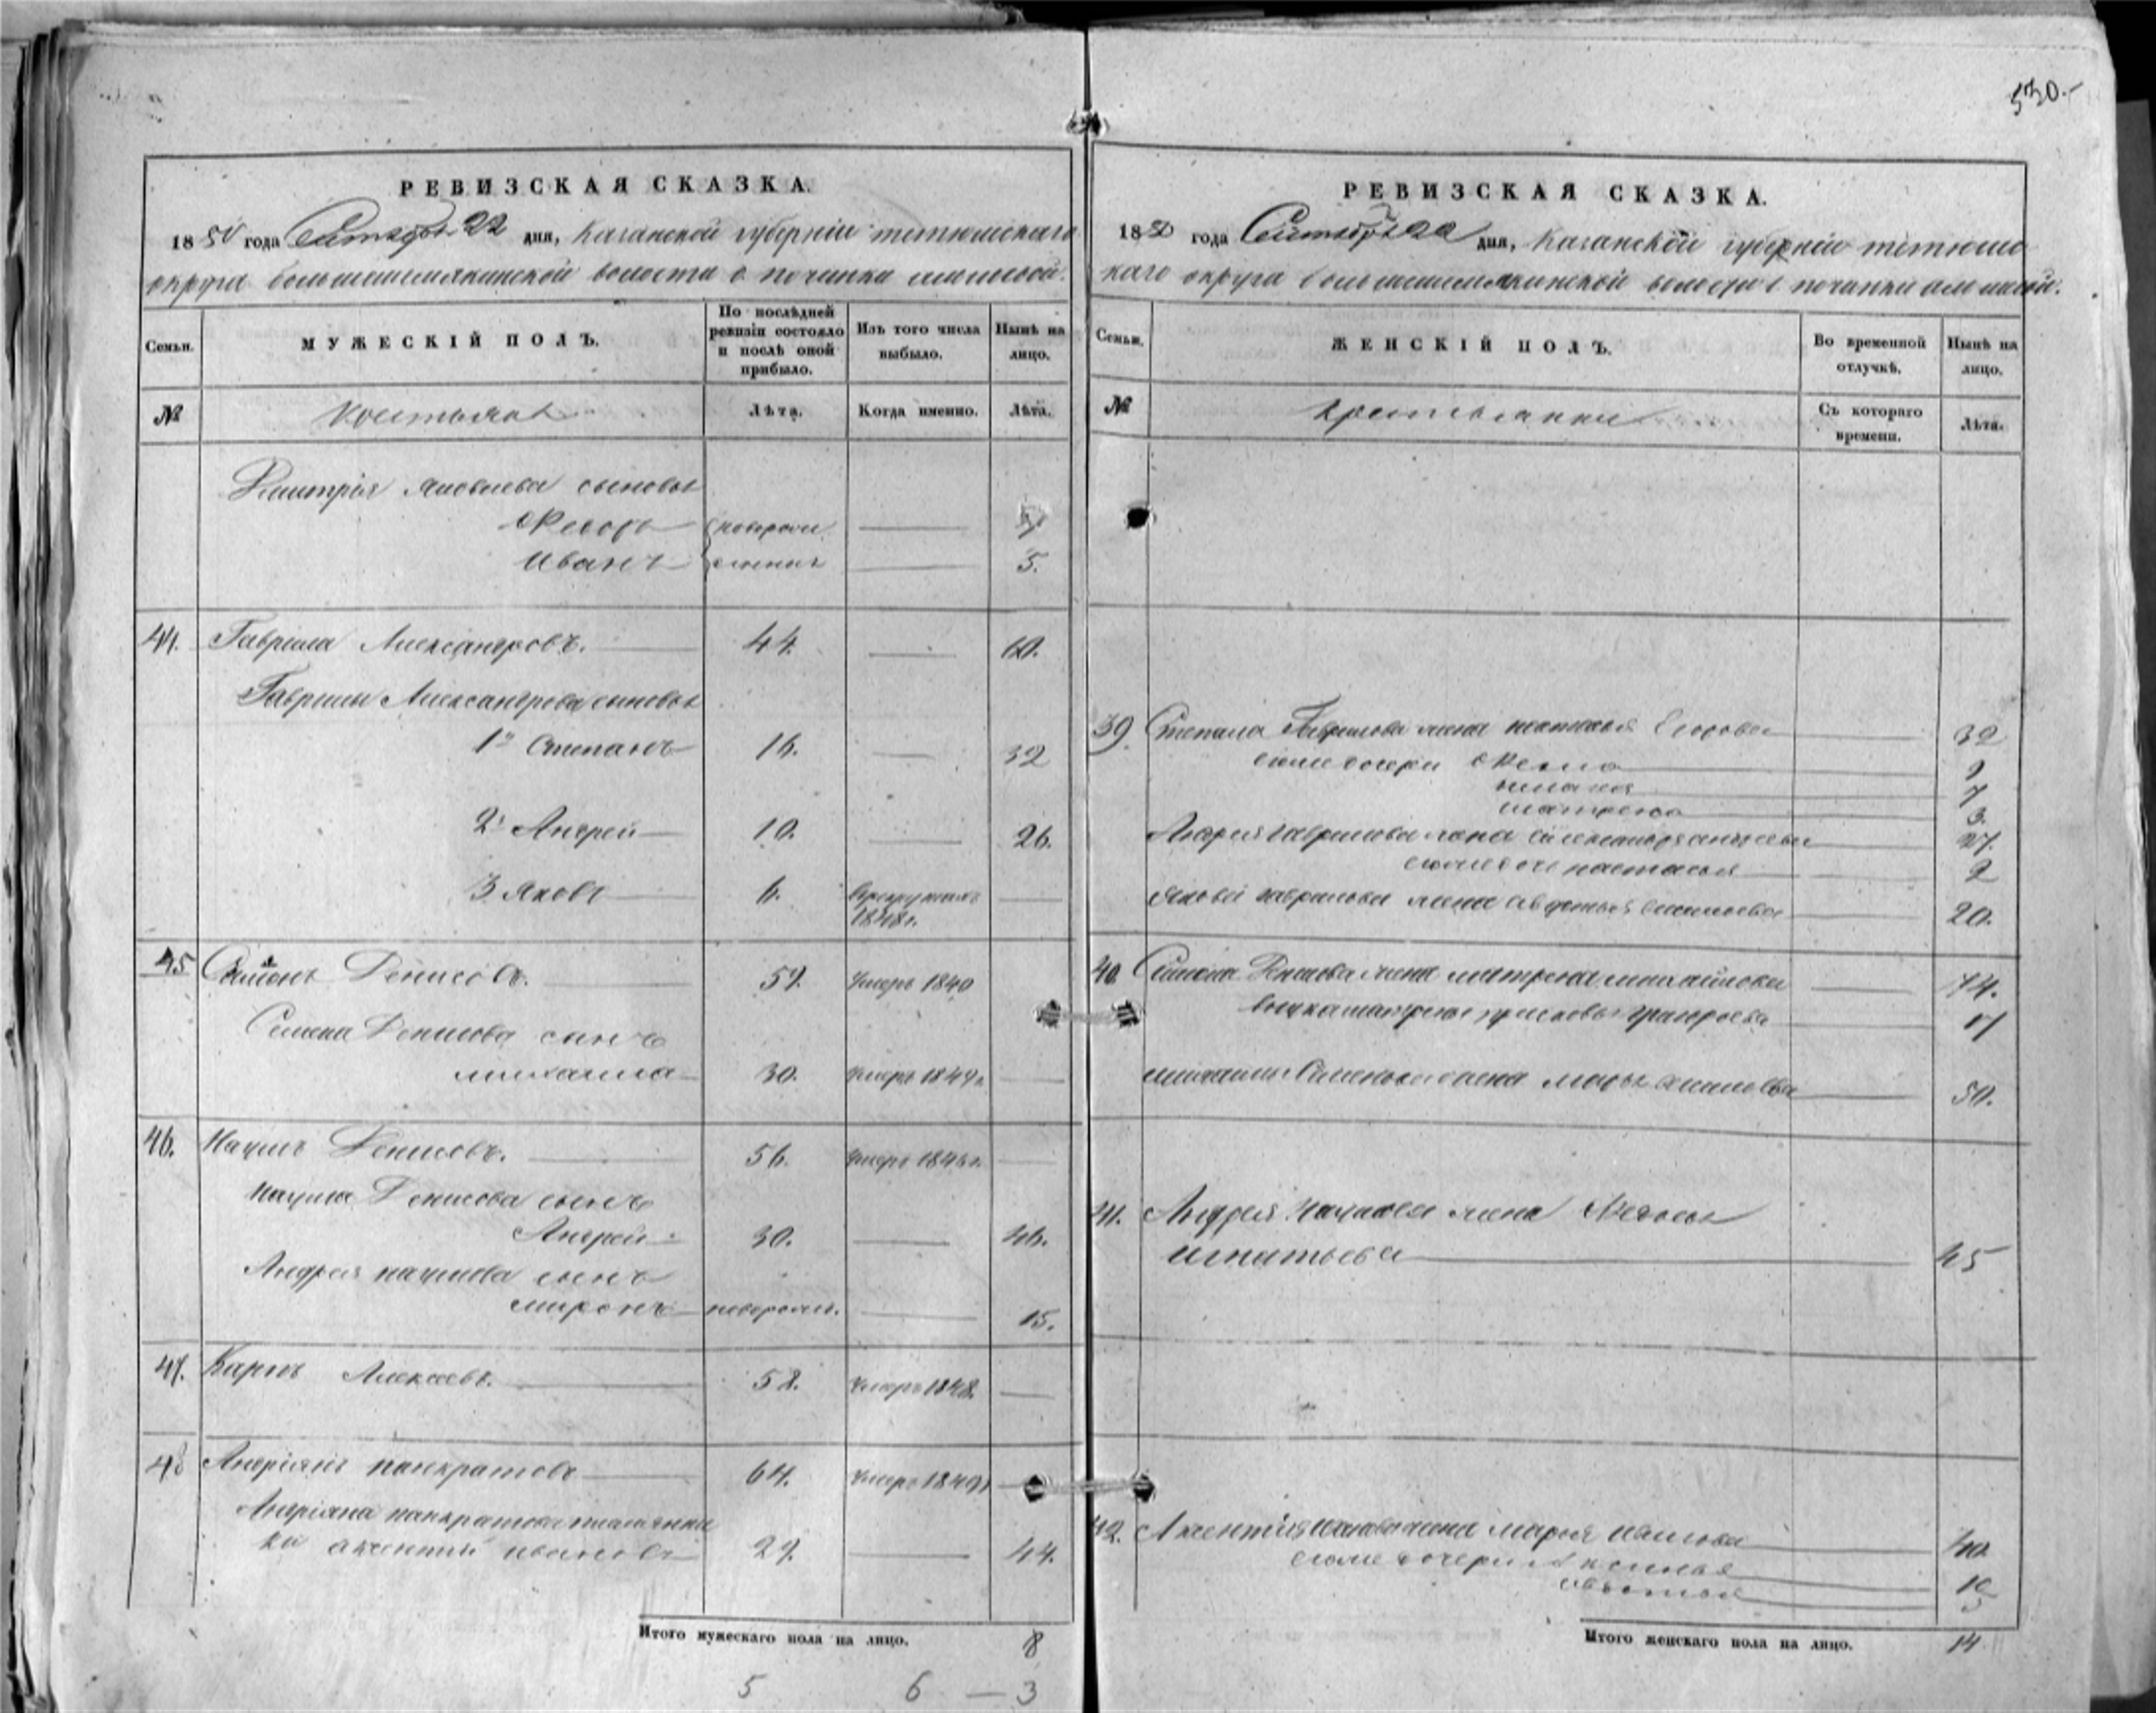 530.
РЕВИЗСКАЯ СКАЗКА.
1850 года Сентября 22 дня, Казанской губерніи тетюшскаго
округа большешемякинской волости о починка
Семьи.
МУЖЕСКІЙ ПОЛЪ.
По послѣдней ревизіи состояло и послѣ оной прибыло.
Изъ того числа выбыло.
Нынѣ на лицо.
№
Крестьяне
Лѣта.
Когда именно.
Лѣта.
Дмитрія Яковлева сыновья
Ѳедоръ новорож
Иванъ денные 5.
44. Гаврила Александровъ. 44. 60.
Гаврилы Александрова сыновья
1й Степанъ 16. 32
2й Андрей 10. 26.
3 Яковъ 6. 1848г.
45 Денисовъ. 59. умеръ 1840
Семена Денисова сынъ
михаила 30. умеръ 1849г.
46. Наумъ Денисовъ. 56. умеръ 1846г.
Наума Денисова сынъ
Андрей 30. 46.
Андрея наумова сынъ
миронъ новорожд. 15.
47. Карпъ Алексеевъ. 58. умеръ 1848.
48 Андріянъ панкратовъ 64. умеръ 1849г
Андріяна панкратова племянни
ки акентій ивановъ 29. 44.
Итого мужескаго пола на лицо. 8
5 6 — 3
РЕВИЗСКАЯ СКАЗКА.
1850 года Сентября 22 дня, Казанской губерніи тетюшс
каго округа большешемякинской волости о починка
Семьи.
ЖЕНСКІЙ ПОЛЪ.
Во временной отлучкѣ.
Нынѣ на лицо.
№
Крестьянки
Съ котораго времени.
Лѣта.
39. Степана Гаврилова жена наталья Егорова 32
ево же дочери Ѳекла 9
7
матрена 3.
Андрея гаврилова жена 27.
ево же дочь настасья 2
Якова гаврилова жена авдотья 20.
40. Семена Денисова жена матрена михайлова 74.
григорьева 17
михаилы Семенова жена марья 50.
41. Андрея Наумова жена Ѳедосья
игнатьева 45
42. Акентія иванова жена марья иванова 40.
ево же дочери Аксинья 10
авдотья 5
Итого женскаго пола на лицо. 14